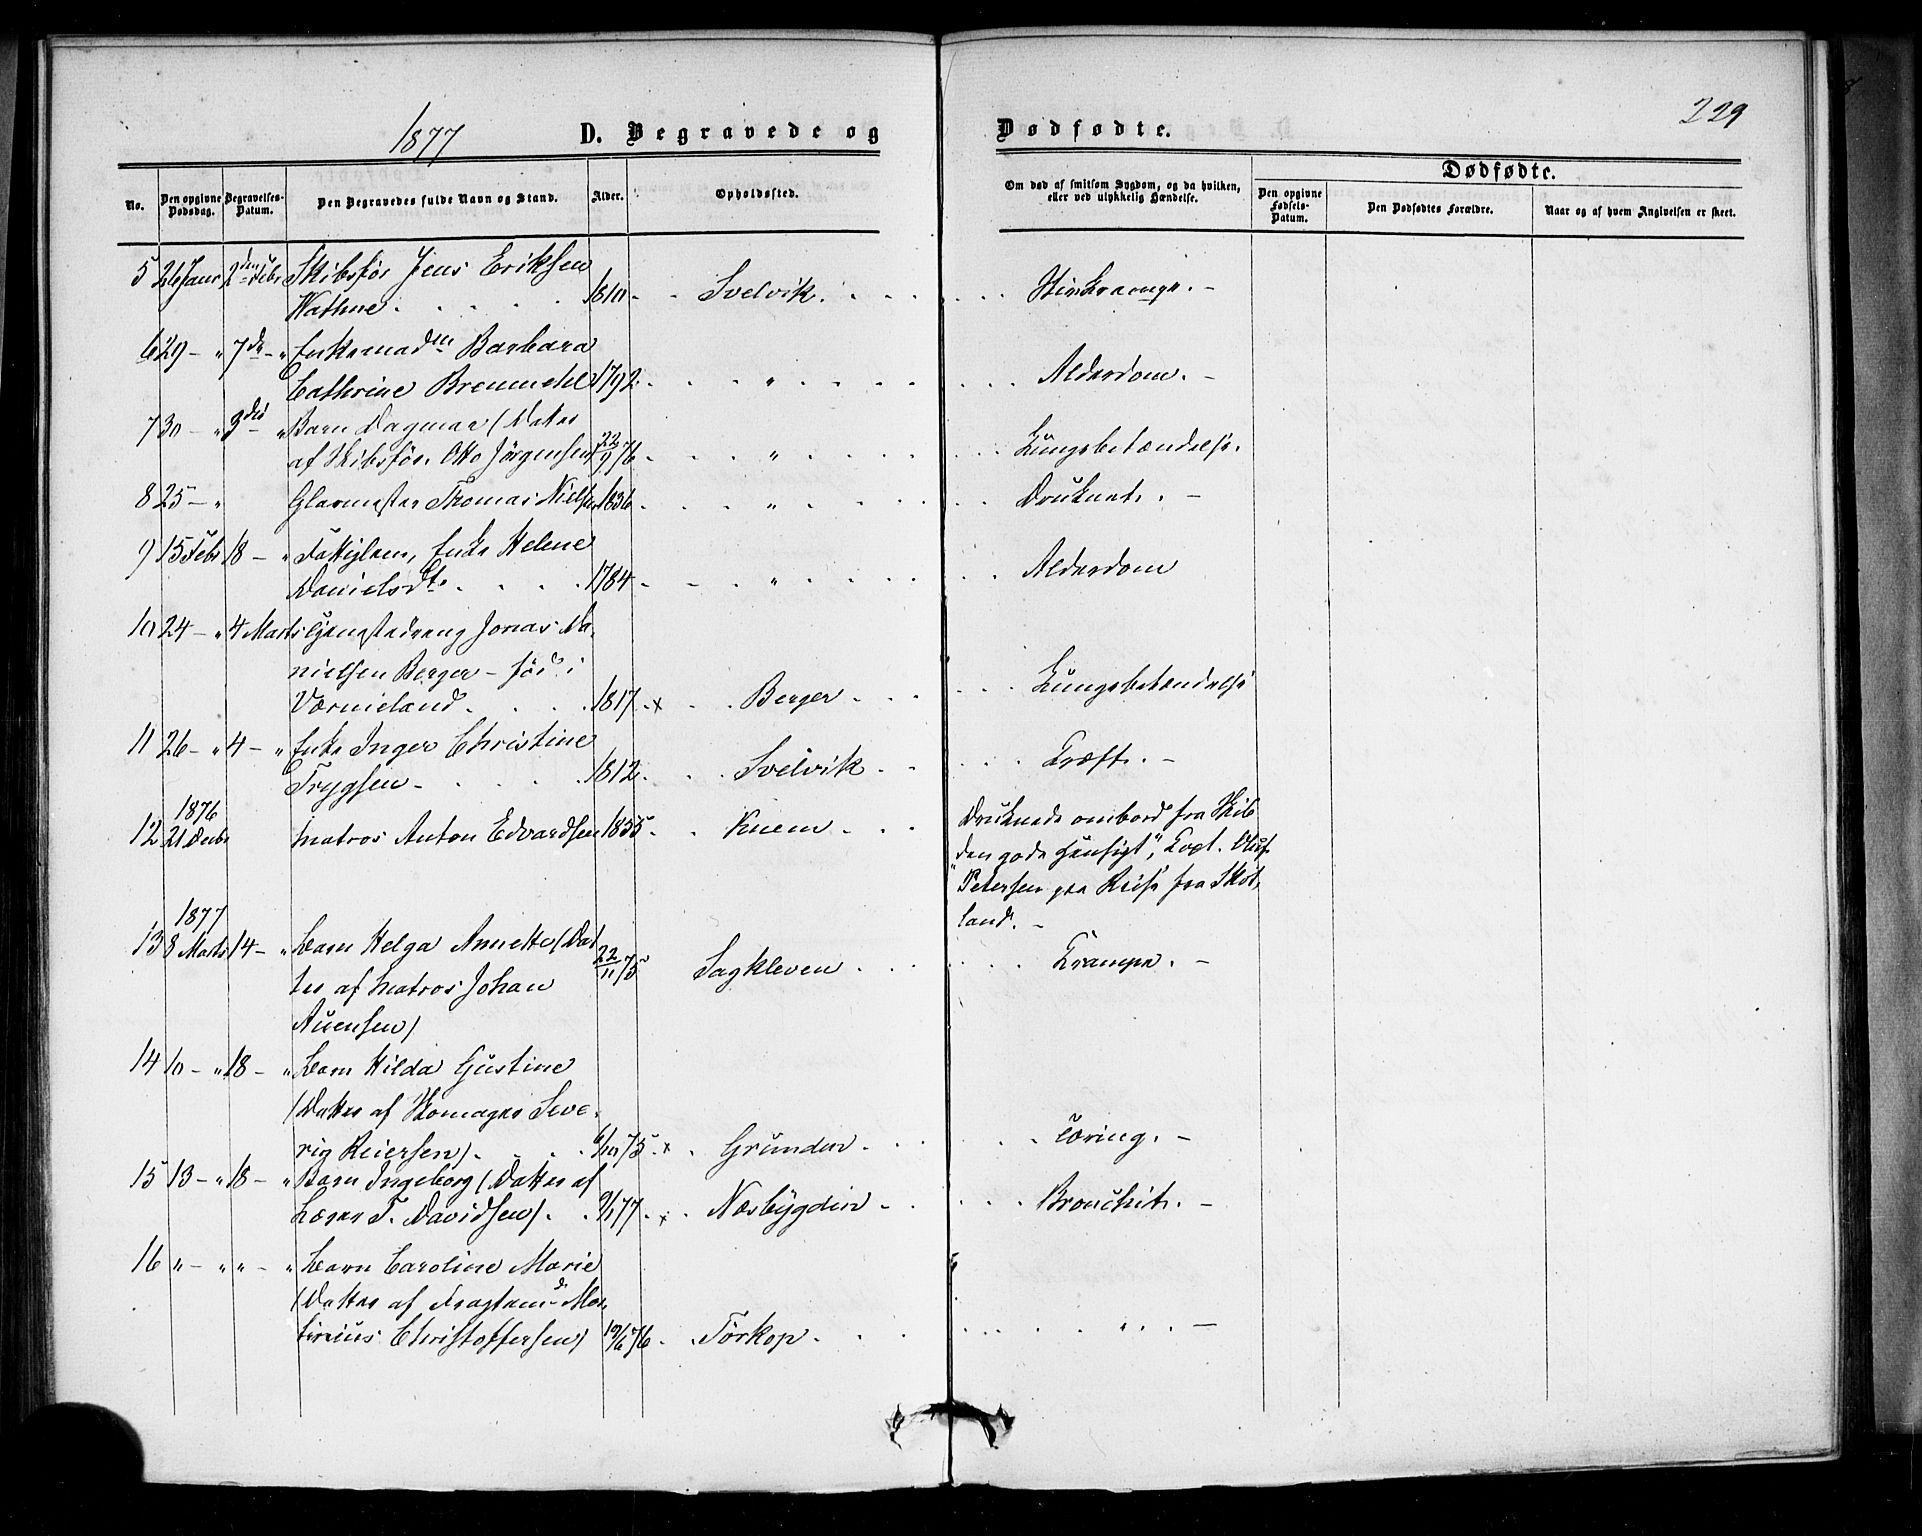 1877 D. Begravede og Dødfødte. 229
No.
Den opgivne Dødsdag.
Begravelses-Datum.
Den Begravedes fulde Navn og Stand.
Alder.
Opholdssted.
Om død af smitsom Sygdom, og da hvilken, eller ved ulykkelig Hændelse.
Dødfødte.
Den opgivne Fødsels-Datum.
Den Dødfødtes Forældre.
Naar og af hvem Angivelsen er skeet.
5 26 Janr 2den Febr Skibsför Jens Eriksen
Wathne . . . . 1810 . . Svelvik . . .
6 29 - " 7de - " Enkemadm Barbara
Cathrine 1792 . . " . . . Alderdom. -
7 30 - " 3die " Barn Dagmar (Datter
af Skibsför. Otto Jörgensen) 22/9 76 . . " . . . Lungebetændelse.
8 25 - " Glarmester Thomas Nielsen 1836 . . " . . . Druknet. -
9 15 Febr 18 - " Fattiglem, Enke Helene
Danielsdtr . . . 1784 - - " . . . Alderdom
10 24 - " 4 Marts Jonas Da-
nielsen Berger - föd i
Værmeland . . . 1817 . x . Berger . . . Lungebetændelse
11 26 - " 4 - " Enke Inger Christine
Trygsen - . . . 1812 . . Svelvik . . . Kræft. -
1876
12 21 Decbr Matros Anton Edvardsen 1855 . . Knem . . . Druknede ombord fra Skib
"den gode Hensigt", Capt. Oluf
Petersen paa Reise fra Skot-
land. -
1877
13 8 Marts 14 - " Barn Helga Annette (Dat
ter af Matros Johan 22/11 75 Sagkleven . . . Krampe. -
Auensen)
14 10 - " 18 - " Barn Hilda Gustine
(Datter af Skomager Seve-
rig Reiersen) . . . 6/10 75 x . Grunden . . . Tæring. -
15 13 - " 18 - " Barn Ingeborg (Datter af
Læger T. Davidsen) . . 9/1 77 . x . Næsbygden . . . Bronchit. -
16 " - " " - " Barn Caroline Marie
(Datter af Fragtemd Mar-
tinius Christoffersen) 10/6 76 . . Törkop . . . " . . -